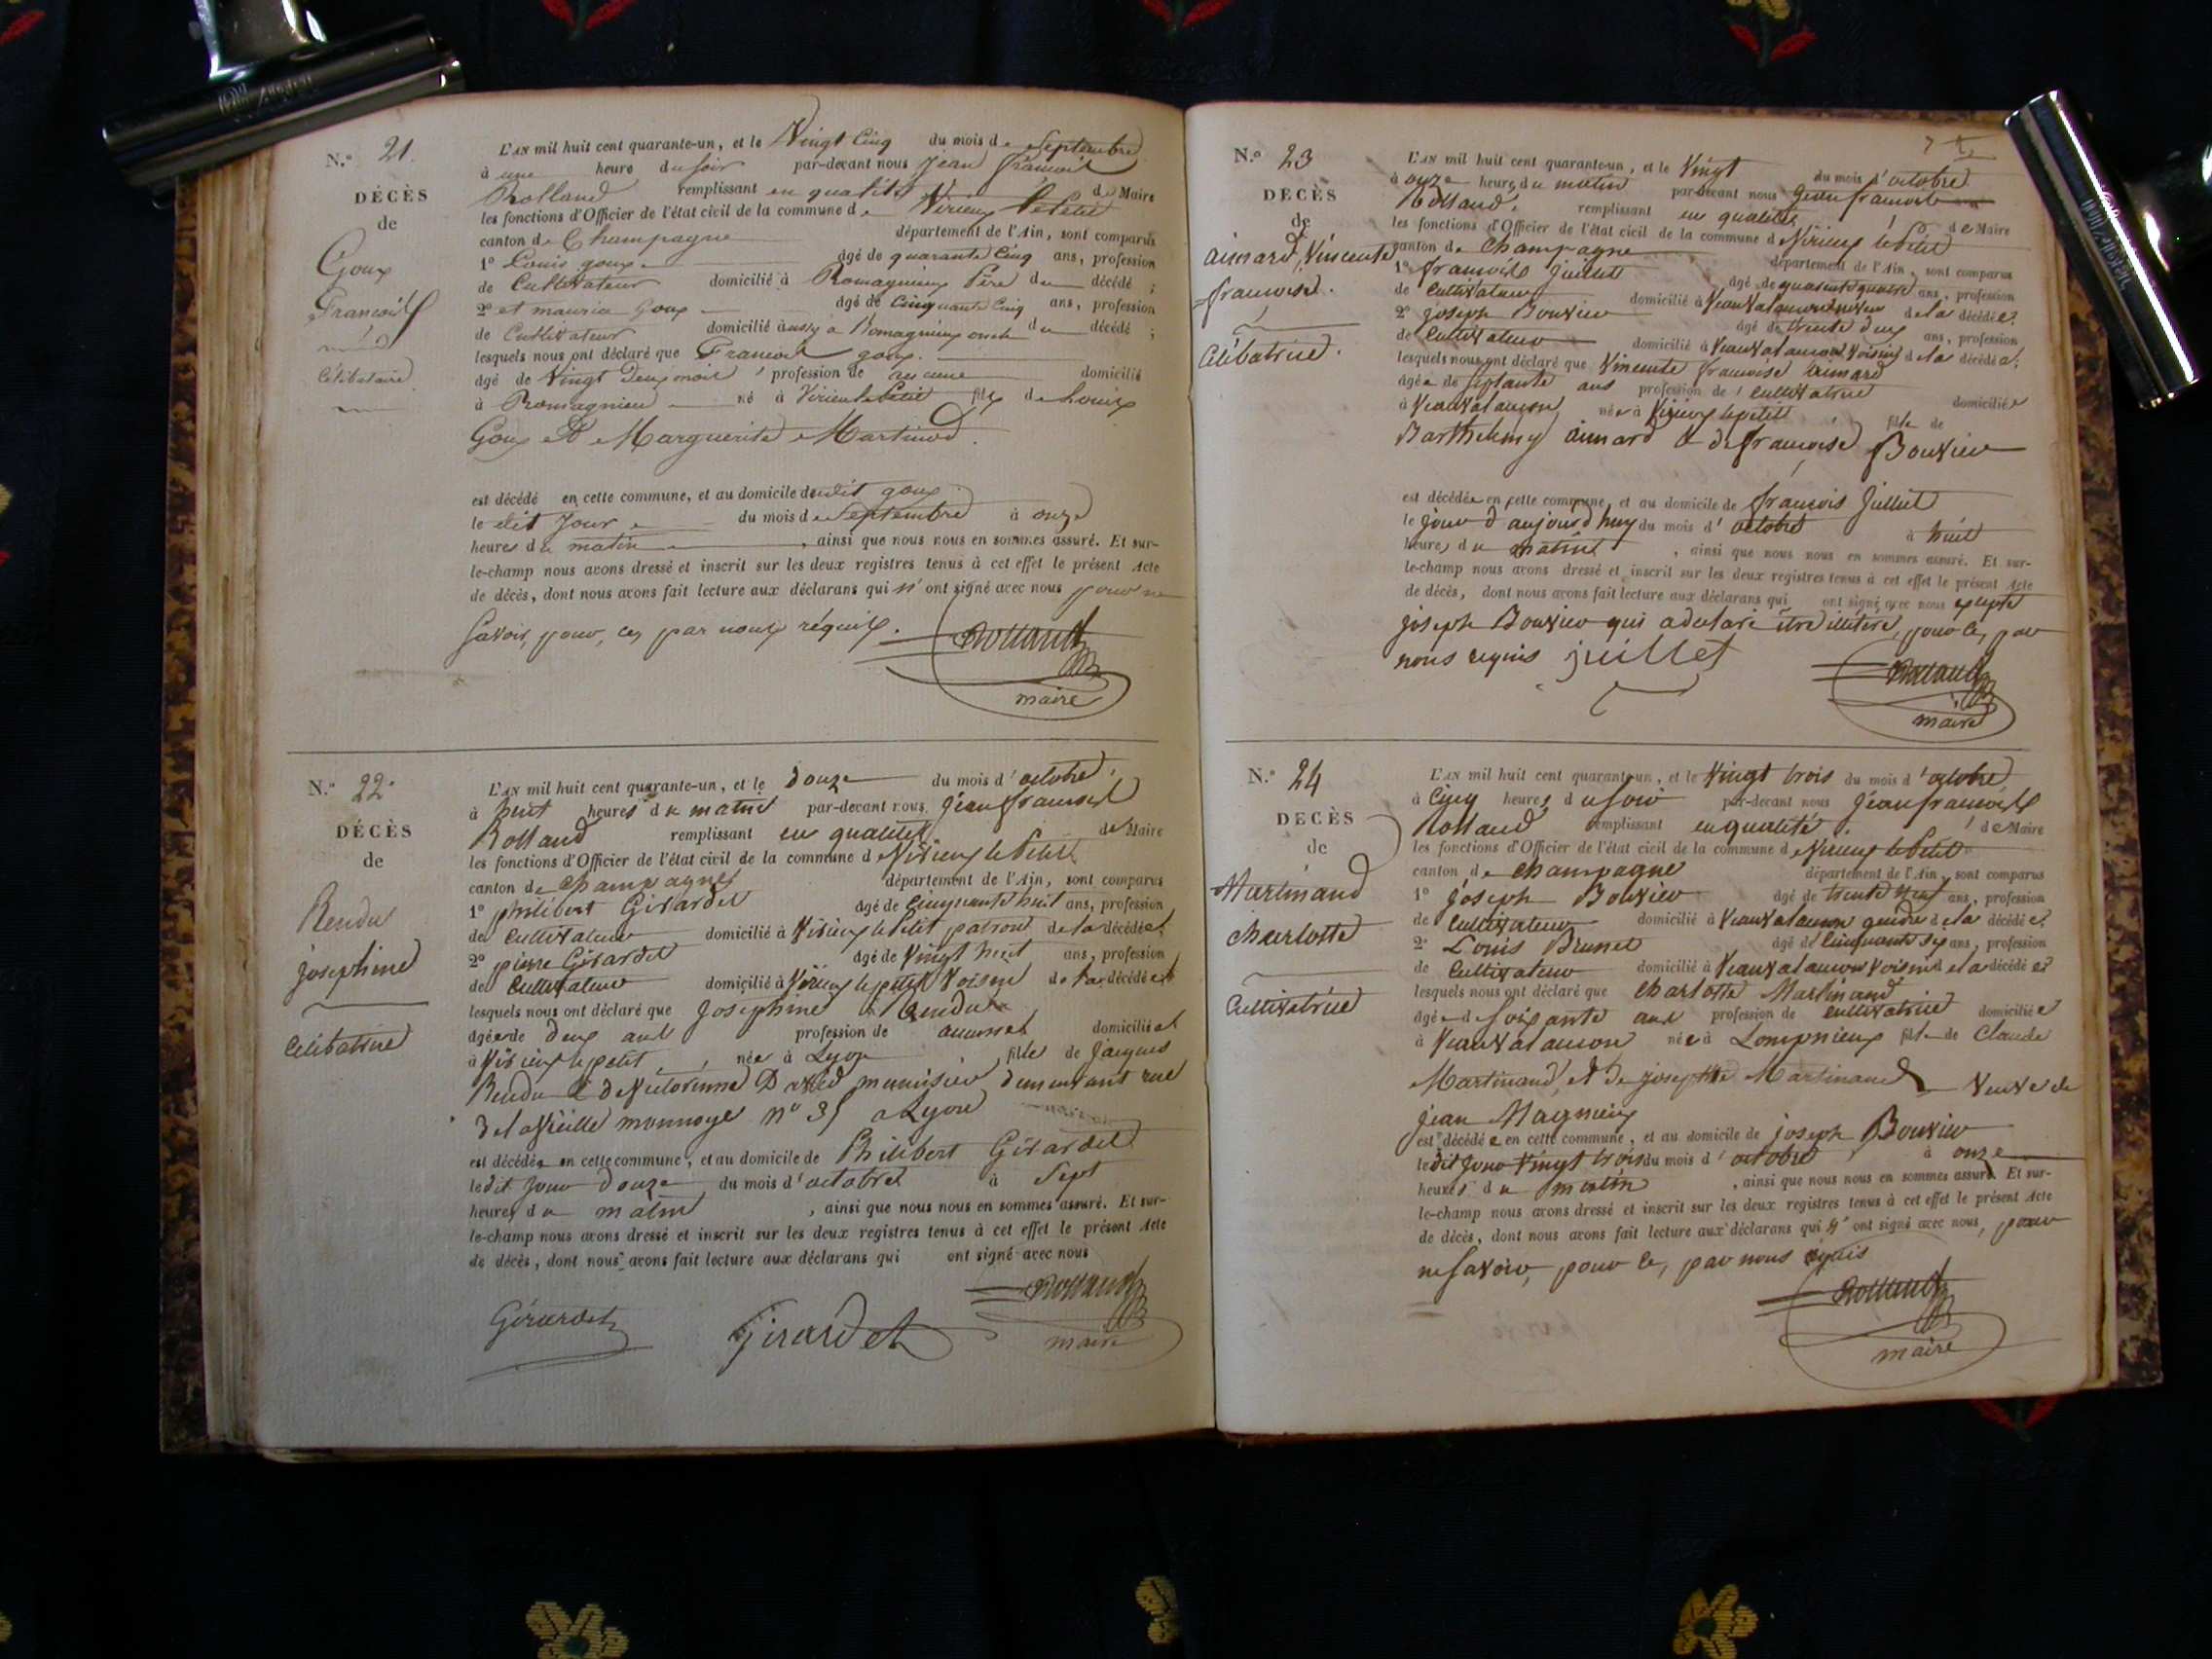 N.º 21
DÉCÈS
de
Goux
François
célibataire
L'AN mil huit cent quarante-un, et le Vingt Cinq du mois de Septembre
à une heure du soir par-devant nous Jean François
Rolland remplissant en qualité de Maire
les fonctions d'Officier de l'état civil de la commune de Virieux le Petit
canton de Champagne département de l'Ain, sont comparus
1º Louis goux âgé de quarante Cinq ans, profession
de Cultivateur domicilié à Romagnieux Père du décédé ;
2º et maurice Goux âgé de Cinquante Cinq ans, profession
de Cultivateur domicilié aussy à Romagnieux oncle du décédé ;
lesquels nous ont déclaré que François goux.
âgé de Vingt Deux mois profession de aucune domicilié
à Romagnieu né à Virieu le Petit fils de Louis
Goux et Marguerite Martinod.
est décédé en cette commune, et au domicile dudit goux
le dit Jour du mois de Septembre à onze
heures du matin, ainsi que nous nous en sommes assuré. Et sur-
le-champ nous avons dressé et inscrit sur les deux registres tenus à cet effet le présent Acte
de décès, dont nous avons fait lecture aux déclarans qui n'ont signé avec nous pour ne
Savoir, pour ce, par nous requis.
Rolland
maire
N.º 22
DÉCÈS
de
Rendu
josephine
célibatrice
L'AN mil huit cent quarante-un, et le douze du mois d'octobre
à huit heures du matin par-devant nous jean francois
Rolland remplissant en qualité de Maire
les fonctions d'Officier de l'état civil de la commune d Virieux le Petit
canton de champagne département de l'Ain, sont comparus
1º philibert Girardet âgé de cinquante huit ans, profession
de cultivateur domicilié à Virieux le Petit patron de la décédée
2º pierre Girardet âgé de Vingt huit ans, profession
de cultivateur domicilié à Virieux le petit Voisin de la décédée
lesquels nous ont déclaré que Josephine Rendu
âgée de deux ans profession de aucune domiciliée
à Virieux le petit, née à Lyon, fille de jacques
Rendu & de Victorinne David menuisier demeurant rue
de la Vieille monnoye nº 31 a Lyon
est décédée en cette commune, et au domicile de Philibert Girardet
le dit jour douze du mois d'octobre à Sept
heures du matin, ainsi que nous nous en sommes assuré. Et sur-
le-champ nous avons dressé et inscrit sur les deux registres tenus à cet effet le présent Acte
de décès, dont nous avons fait lecture aux déclarans qui ont signé avec nous
Rolland
Girardet Girardet
maire
N.º 23
DÉCÈS
de
aimard, Vincente
francoise.
célibatrice.
L'AN mil huit cent quarante-un, et le Vingt du mois d'octobre
à onze heures du matin par-devant nous jean francois
Rolland remplissant en qualité de Maire
les fonctions d'Officier de l'état civil de la commune d Virieux le Petit
canton de champagne département de l'Ain, sont comparus
1º francois juillet âgé de quarante quatre ans, profession
de cultivateur domicilié à de la décédée
2º joseph Bouvier âgé de trente deux ans, profession
de cultivateur domicilié à Voisin de la décédée
lesquels nous ont déclaré que Vincente francoise aimard
âgée de septante ans profession de cultivatrice domiciliée
à née à Virieux le petit fille de
Barthelemy aimard & de francoise Bouvier
est décédée en cette commune, et au domicile de francois juillet
le jour d'aujourd'huy du mois d'octobre à huit
heures du matin, ainsi que nous nous en sommes assuré. Et sur-
le-champ nous avons dressé et inscrit sur les deux registres tenus à cet effet le présent Acte
de décès, dont nous avons fait lecture aux déclarans qui ont signé avec nous excepté
joseph Bouvier qui a déclaré être illitéré, pour ce, par
nous requis juillet
Rolland
maire
N.º 24
DÉCÈS
de
Martinand
charlotte
Cultivatrice
L'AN mil huit cent quarante-un, et le Vingt trois du mois d'octobre
à cinq heures du soir par-devant nous jean francois
Rolland remplissant en qualité de Maire
les fonctions d'Officier de l'état civil de la commune d Virieux le Petit
canton de champagne département de l'Ain, sont comparus
1º joseph Bouvier âgé de trente neuf ans, profession
de cultivateur domicilié à gendre de la décédée
2º Louis Brunet âgé de cinquante six ans, profession
de cultivateur domicilié à Voisin de la décédée
lesquels nous ont déclaré que charlotte Martinand
âgée de soixante ans profession de cultivatrice domiciliée
à née à Lompnieux fille de Claude
Martinand et de josephte Martinand Veuve de
jean Magnieux
est décédée en cette commune, et au domicile de joseph Bouvier
le dit jour Vingt trois du mois d'octobre à onze
heures du matin, ainsi que nous nous en sommes assuré. Et sur-
le-champ nous avons dressé et inscrit sur les deux registres tenus à cet effet le présent Acte
de décès, dont nous avons fait lecture aux déclarans qui n'ont signé avec nous, pour
ne savoir, pour ce, par nous requis
Rolland
maire